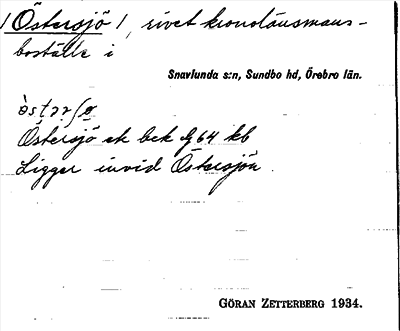 /Östersjö/, rivet kronolänsmans-
boställe i
Snavlunda s:n, Sundbo hd, Örebro län.
Östersjö ek bek 64 kb
Ligger invid Östersjön.
GÖRAN ZETTERBERG 1934.